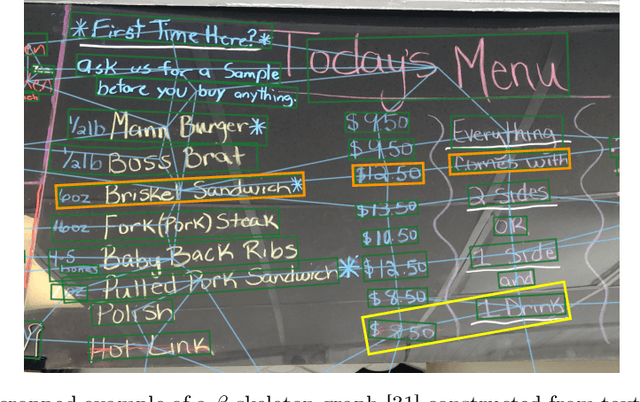 *First Time Here?*
ask us for a Sample
before you buy anything.
Today's Menu
1/2lb Mann Burger* $9.50
1/2lb Boss Brat $9.50
6oz Brisket Sandwich* $12.50
16oz Fork(Pork) Steak $13.50
4-5 bones Baby Back Ribs $10.50
Pulled Pork Sandwich* $12.50
Polish $8.50
Hot Link $8.50
Everything
comes with
2 Sides
OR
1 Side
and
1 Drink
cropped example of a β-skeleton graph [31] constructed from text